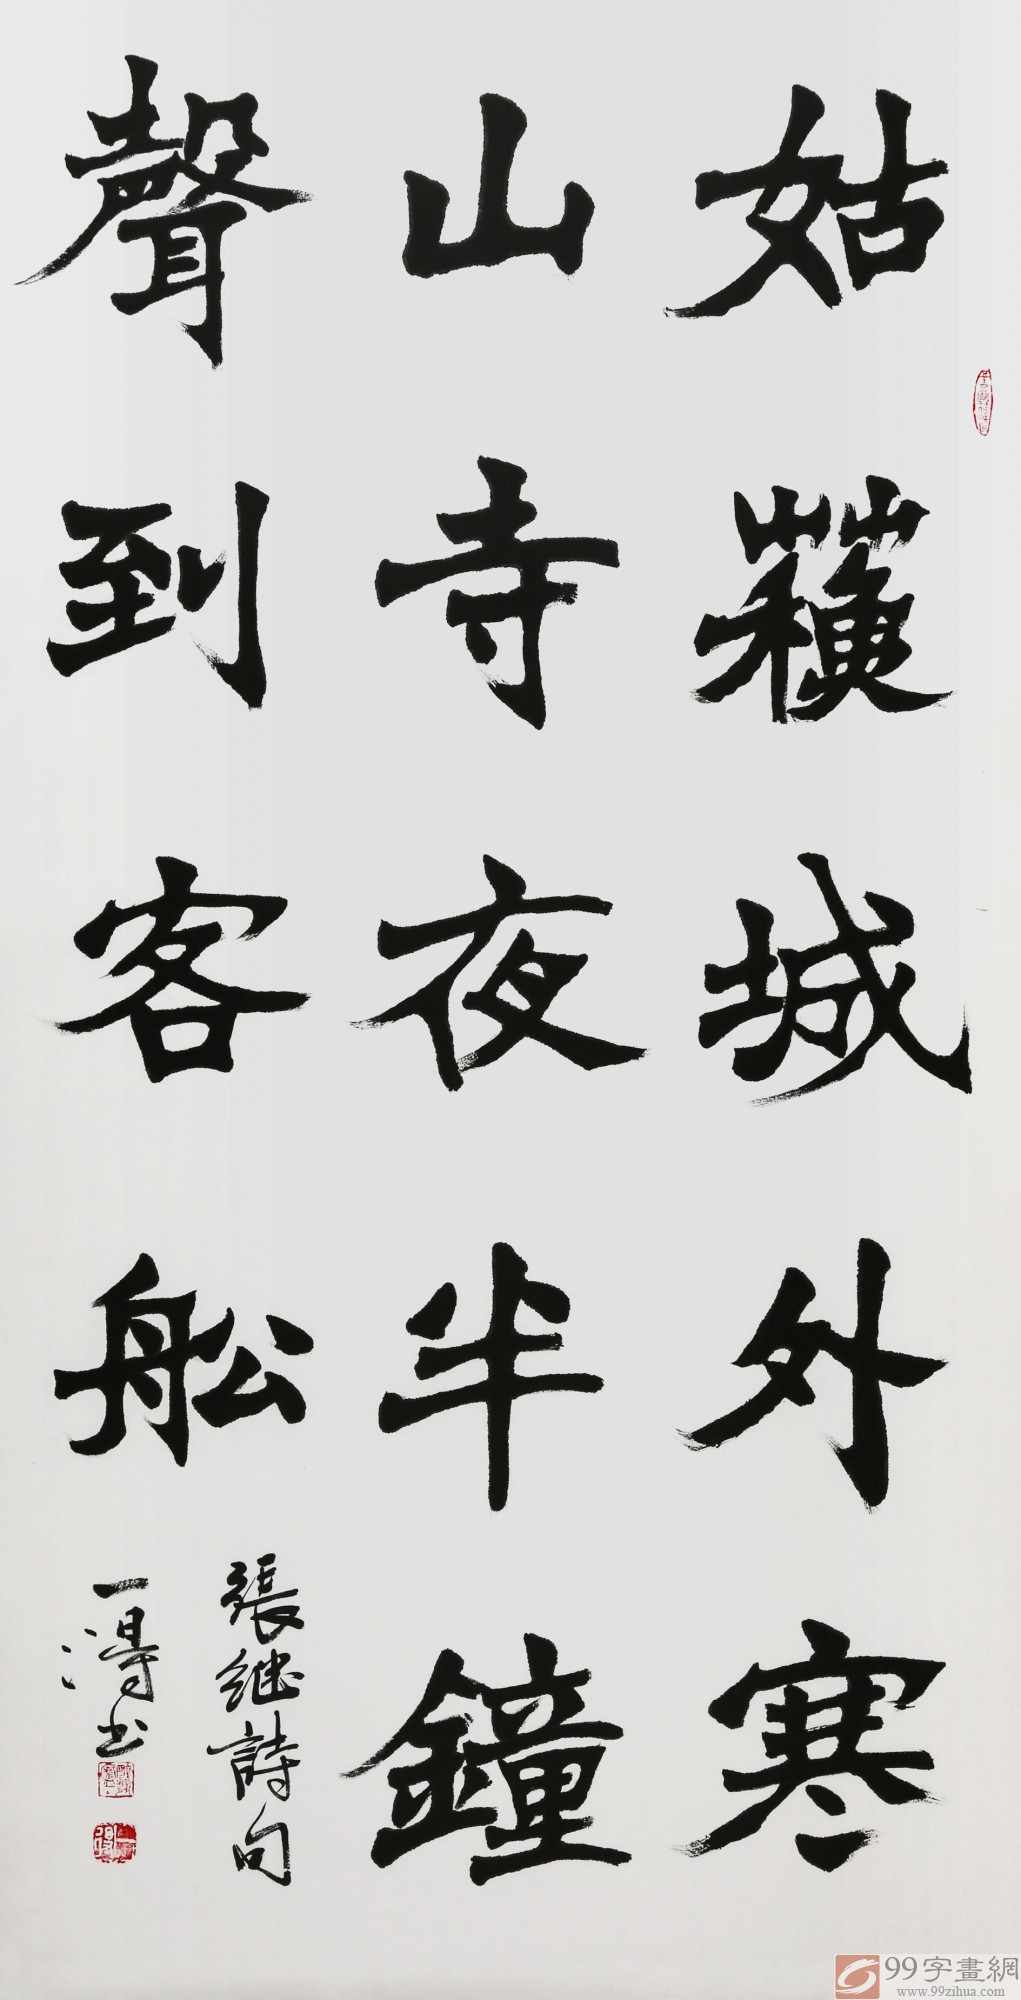 姑蘓城外寒
山寺夜半鐘
聲到客舩
張继詩句
一淂书
99字畫網
www.99zihua.com